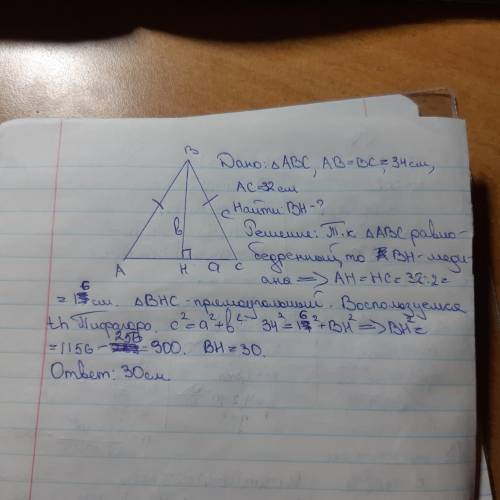 B
Дано: △ABC, AB=BC=34см,
AC=32см
Найти: BH-?
c
b
Решение: Т.к △ABC равно-
бедренный, то BH-меди-
A H a C
ана => AH=HC=32:2=
=16см. △BHC-прямоугольный. Воспользуемся
th Пифагора. c²=a²+b² 34²=16²+BH² => BH²=
=1156-256=900. BH=30.
Ответ: 30см.